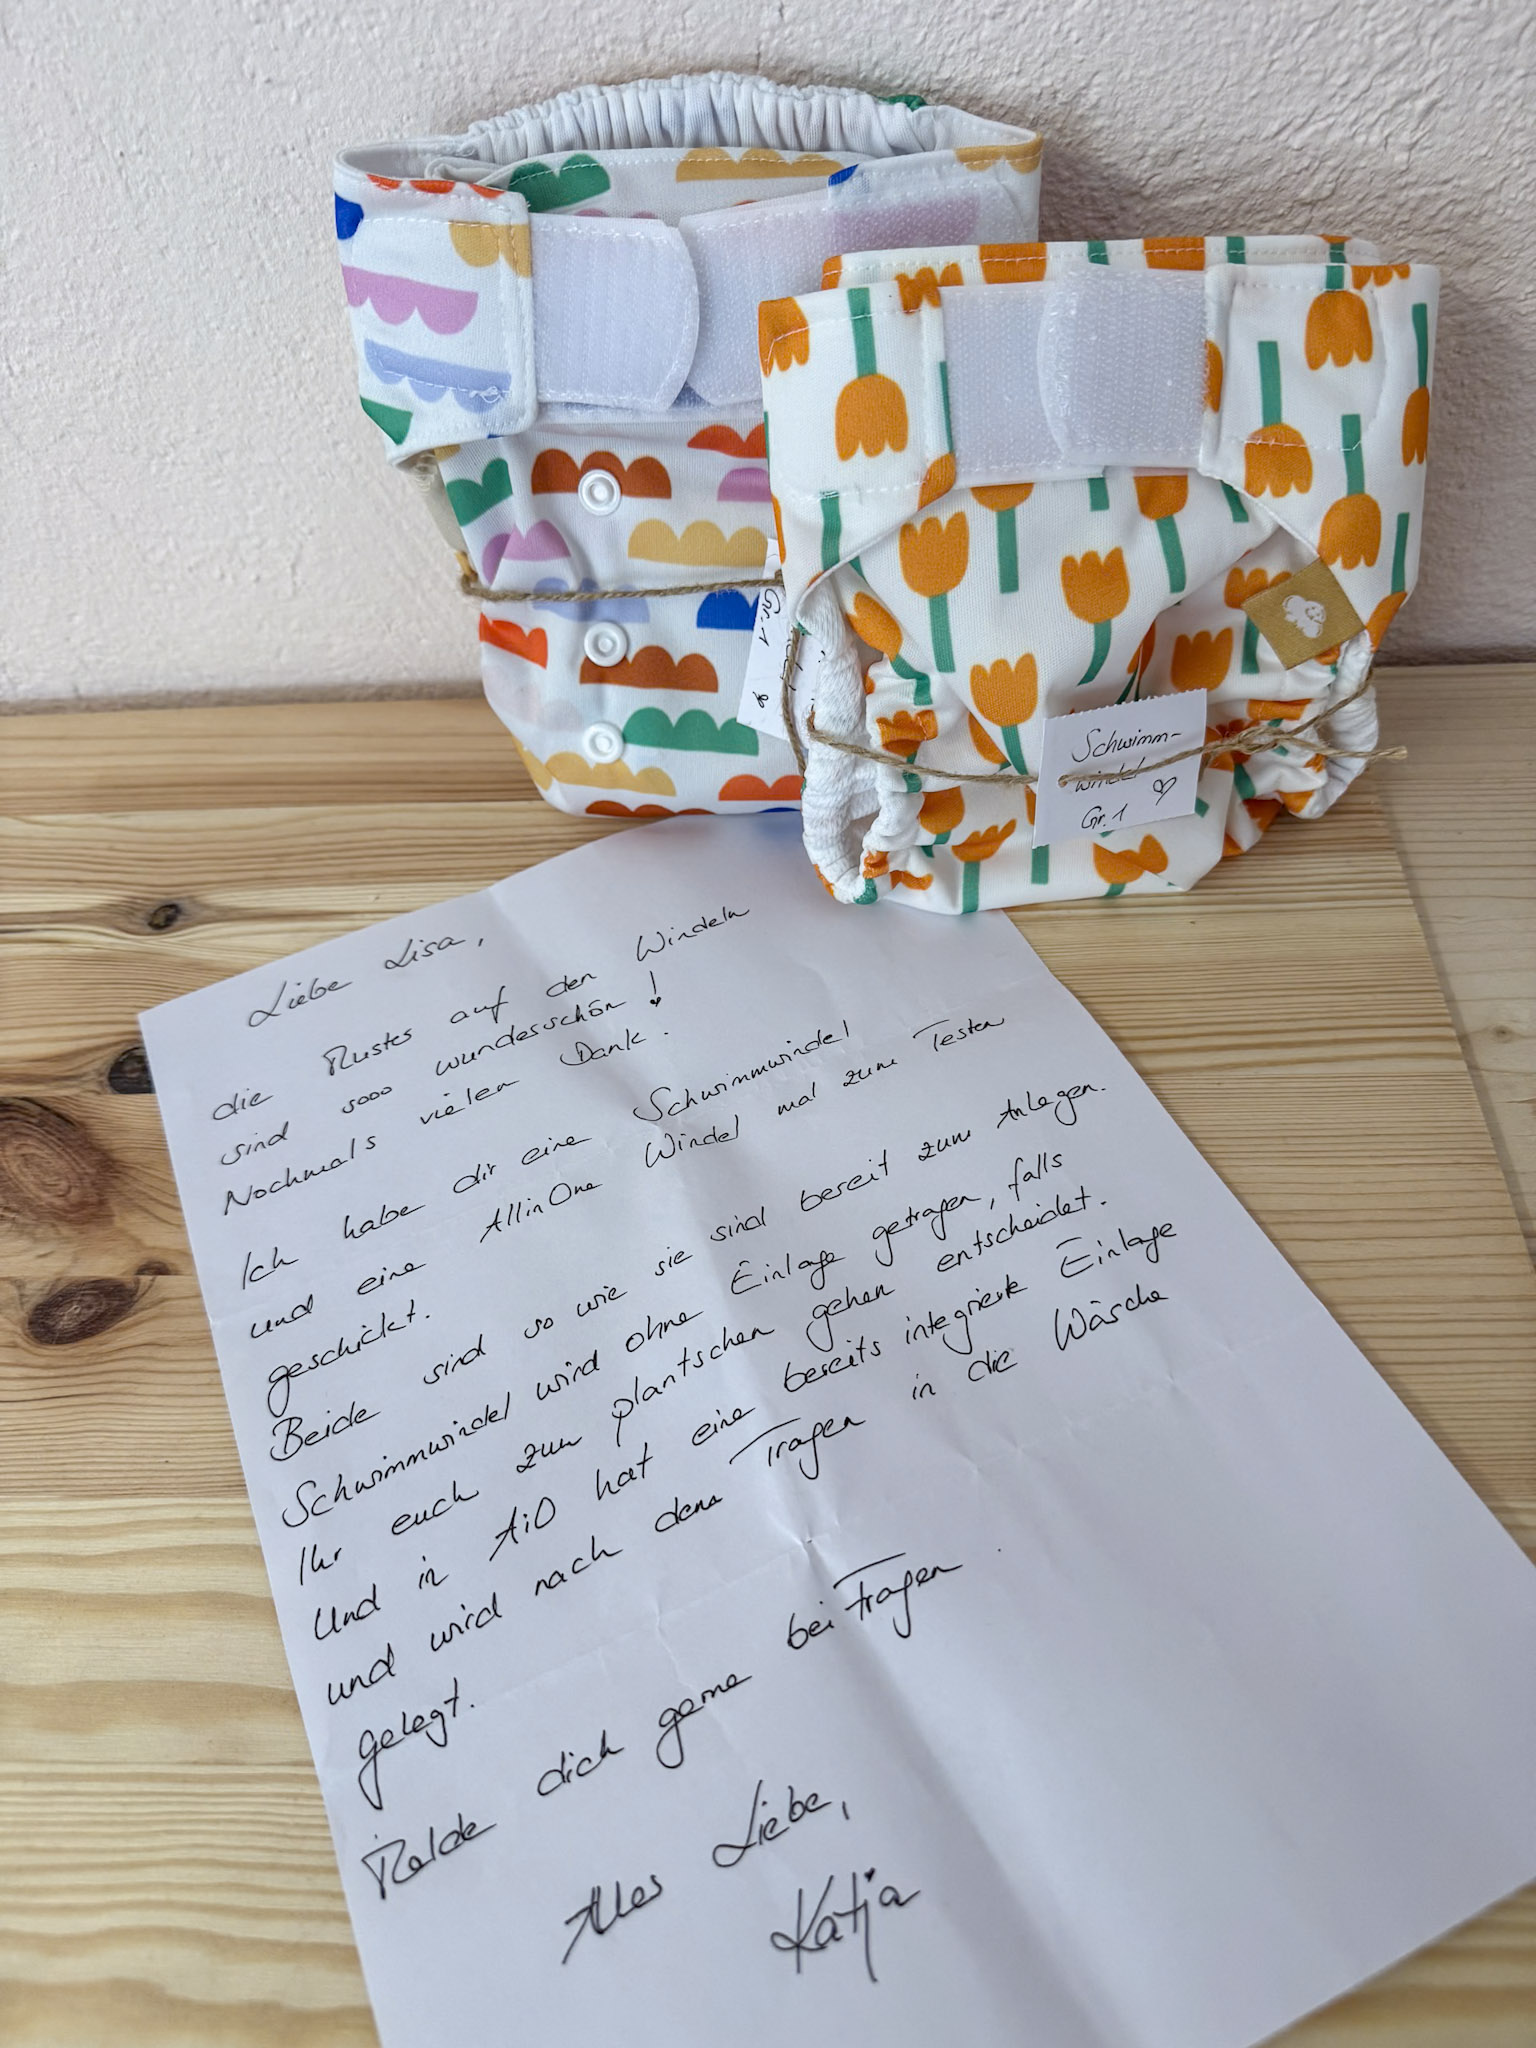 Gr. 1
Schwimm-
windel
Gr. 1
Liebe Lisa,
die Muster auf den Windeln
sind sooo wunderschön!
Nochmals vielen Dank.
Ich habe dir eine Schwimmwindel
und eine AllinOne Windel mal zum Testen
geschickt.
Beide sind so wie sie sind bereit zum Anlegen.
Schwimmwindel wird ohne Einlage getragen, falls
Ihr euch zum plantschen gehen entscheidet.
Und in AiO hat eine bereits integrierte Einlage
und wird nach dem Tragen in die Wäsche
gelegt.
Melde dich gerne bei Fragen
Alles Liebe,
Katja